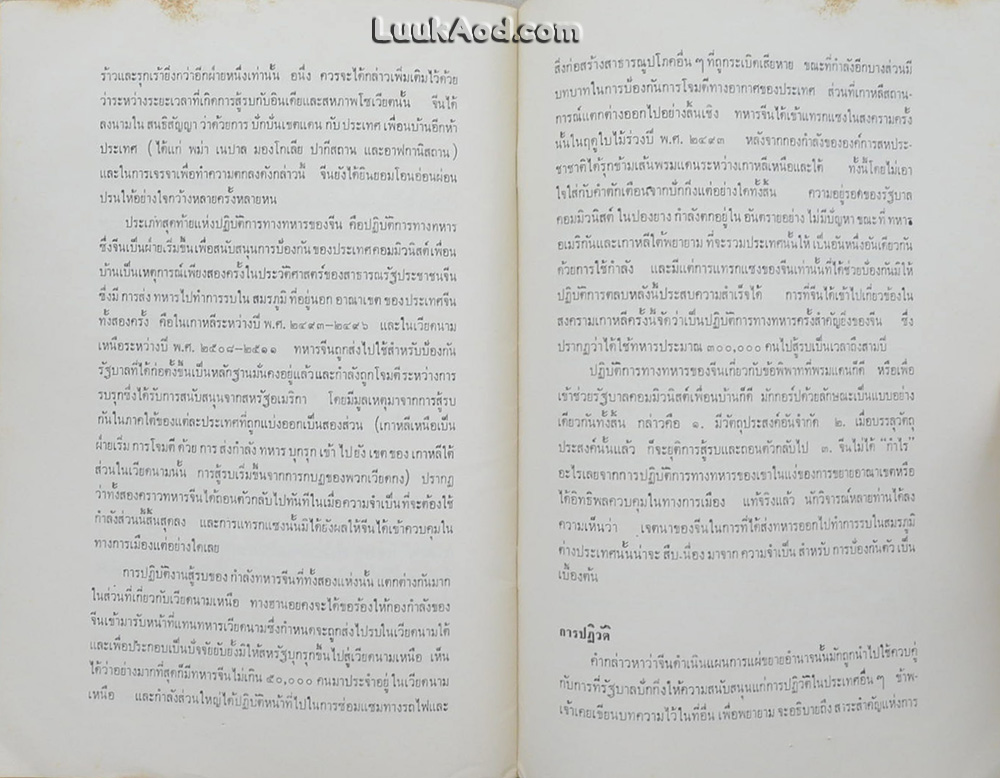 LuukAod.com
ร้าวและรุกเร้ายิ่งกว่าอีกฝ่ายหนึ่งเท่านั้น อนึ่ง ควรจะได้กล่าวเพิ่มเติมไว้ด้วย
ว่าระหว่างระยะเวลาที่เกิดการสู้รบกับอินเดียและสหภาพโซเวียตนั้น จีนได้
ลงนามใน สนธิสัญญา ว่าด้วยการ ปักปันเขตแดน กับ ประเทศ เพื่อนบ้านอีกห้า
ประเทศ (ได้แก่ พม่า เนปาล มองโกเลีย ปากีสถาน และอาฟกานิสถาน)
และในการเจรจาเพื่อทำความตกลงดังกล่าวนี้ จีนยังได้ยินยอมโอนอ่อนผ่อน
ปรนให้อย่างใจกว้างหลายครั้งหลายหน
ประเภทสุดท้ายแห่งปฏิบัติการทางทหารของจีน คือปฏิบัติการทางทหาร
ซึ่งจีนเป็นฝ่ายเริ่มขึ้นเพื่อสนับสนุนการป้องกัน ของประเทศ คอมมิวนิสต์เพื่อน
บ้านเป็นเหตุการณ์เพียงสองครั้งในประวัติศาสตร์ของสาธารณรัฐประชาชนจีน
ซึ่งมี การส่ง ทหารไปทำการรบใน สมรภูมิ ที่อยู่นอก อาณาเขต ของ ประเทศจีน
ทั้งสองครั้ง คือในเกาหลีระหว่างปี พ.ศ. ๒๔๙๓–๒๔๙๖ และในเวียดนาม
เหนือระหว่างปี พ.ศ. ๒๕๐๘–๒๕๑๑ ทหารจีนถูกส่งไปใช้สำหรับป้องกัน
รัฐบาลที่ได้ก่อตั้งขึ้นเป็นหลักฐานมั่นคงอยู่แล้วและกำลังถูกโจมตี ระหว่างการ
รบรุกซึ่งได้รับการสนับสนุนจากสหรัฐอเมริกา โดยมีมูลเหตุมาจากการสู้รบ
กันในภาคใต้ของแต่ละประเทศที่ถูกแบ่งออกเป็นสองส่วน (เกาหลีเหนือเป็น
ฝ่ายเริ่ม การโจมตี ด้วย การ ส่งกำลัง ทหาร บุกรุก เข้า ไป ยัง เขต ของ เกาหลีใต้
ส่วนในเวียดนามนั้น การสู้รบเริ่มขึ้นจากการกบฏของพวกเวียดกง) ปรากฏ
ว่าทั้งสองคราวทหารจีนได้ถอนตัวกลับไปทันทีในเมื่อความจำเป็นที่จะต้องใช้
กำลังส่วนนี้สิ้นสุดลง และการแทรกแซงนั้นมิได้ยังผลให้จีนได้เข้าควบคุมใน
ทางการเมืองแต่อย่างใดเลย
การปฏิบัติงานสู้รบของ กำลังทหารจีนที่ทั้งสองแห่งนั้น แตกต่างกันมาก
ในส่วนที่เกี่ยวกับเวียดนามเหนือ ทางฮานอยคงจะได้ขอร้องให้กองกำลังของ
จีนเข้ามารับหน้าที่แทนทหารเวียดนามซึ่งกำหนดจะถูกส่งไปรบในเวียดนามใต้
และเพื่อประกอบเป็นปัจจัยยับยั้งมิให้สหรัฐบุกรุกขึ้นไปสู่เวียดนามเหนือ เห็น
ได้ว่าอย่างมากที่สุดก็มีทหารจีนไม่เกิน ๕๐,๐๐๐ คนมาประจำอยู่ ในเวียดนาม
เหนือ และกำลังส่วนใหญ่ได้ปฏิบัติหน้าที่ไปในการซ่อมแซมทางรถไฟและ
สิ่งก่อสร้างสาธารณูปโภคอื่น ๆ ที่ถูกระเบิดเสียหาย ขณะที่กำลังอีกบางส่วนมี
บทบาทในการป้องกันการโจมตีทางอากาศของประเทศ ส่วนที่เกาหลีสถาน–
การณ์แตกต่างออกไปอย่างสิ้นเชิง ทหารจีนได้เข้าแทรกแซงในสงครามครั้ง
นั้นในฤดูใบไม้ร่วงปี พ.ศ. ๒๔๙๓ หลังจากกองกำลังขององค์การสหประ–
ชาชาติได้รุกข้ามเส้นพรมแดนระหว่างเกาหลีเหนือและใต้ ทั้งนี้โดยไม่เอา
ใจใส่กับคำตักเตือนจากปักกิ่งแต่อย่างใดทั้งสิ้น ความอยู่รอดของรัฐบาล
คอมมิวนิสต์ ในปยองยาง กำลังตกอยู่ใน อันตรายอย่าง ไม่มีปัญหา ขณะ ที่ ทหาร
อเมริกันและเกาหลีใต้พยายาม ที่จะรวมประเทศนั้นให้ เป็นอันหนึ่งอันเดียวกัน
ด้วยการใช้กำลัง และมีแต่การแทรกแซงของจีนเท่านั้นที่ได้ช่วยป้องกันมิให้
ปฏิบัติการตลบหลังนี้ประสบความสำเร็จได้ การที่จีนได้เข้าไปเกี่ยวข้องใน
สงครามเกาหลีครั้งนี้จัดว่าเป็นปฏิบัติการทางทหารครั้งสำคัญยิ่งของจีน ซึ่ง
ปรากฏว่าได้ใช้ทหารประมาณ ๓๐๐,๐๐๐ คนไปสู้รบเป็นเวลาถึงสามปี
ปฏิบัติการทางทหารของจีนเกี่ยวกับข้อพิพาทที่พรมแดนก็ดี หรือเพื่อ
เข้าช่วยรัฐบาลคอมมิวนิสต์เพื่อนบ้านก็ดี มักกอร์ปด้วยลักษณะเป็นแบบอย่าง
เดียวกันทั้งสิ้น กล่าวคือ ๑. มีวัตถุประสงค์อันจำกัด ๒. เมื่อบรรลุวัตถุ
ประสงค์นั้นแล้ว ก็จะยุติการสู้รบและถอนตัวกลับไป ๓. จีนไม่ได้ "กำไร"
อะไรเลยจากการปฏิบัติการทางทหารของเขาในแง่ของการขยายอาณาเขตหรือ
ได้อิทธิพลควบคุมในทางการเมือง แท้จริงแล้ว นักวิจารณ์หลายท่านได้ลง
ความเห็นว่า เจตนาของจีนในการที่ได้ส่งทหารออกไปทำการรบในสมรภูมิ
ต่างประเทศนั้นน่าจะ สืบ เนื่อง มาจาก ความจำเป็น สำหรับ การป้องกันตัว เป็น
เบื้องต้น
การปฏิวัติ
คำกล่าวหาว่าจีนดำเนินแผนการแผ่ขยายอำนาจนั้นมักถูกนำไปใช้ควบคู่
กับการที่รัฐบาลปักกิ่งให้ความสนับสนุนแก่การปฏิวัติในประเทศอื่น ๆ ข้าพ–
เจ้าเคยเขียนบทความไว้ในที่อื่น เพื่อพยายาม จะอธิบายถึง สาระสำคัญแห่งการ